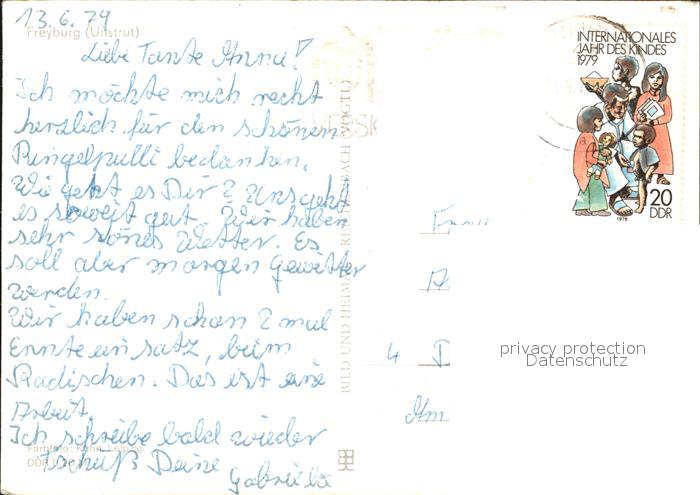 13.6.79
Freyburg (Unstrut)
Liebe Tante Anna!
Ich möchte mich recht
herzlich für den schönen
Ringelpulli bedanken.
Wie geht es Dir? Uns geht
es soweit gut. Wir haben
sehr schönes Wetter. Es
soll aber morgen Gewitter
werden.
Wir haben schon 2 mal
Ernteeinsatz, beim
Radischen. Das ist eine
Arbeit.
Ich schreibe bald wieder
Tschüß Deine
Gabriele
Farbfoto: Kühn, Leipzig
DDR
BILD UND HEIMAT REICHENBACH (VOGTL)
INTERNATIONALES
JAHR DES KINDES
1979
20
DDR
1979
4
privacy protection
Datenschutz